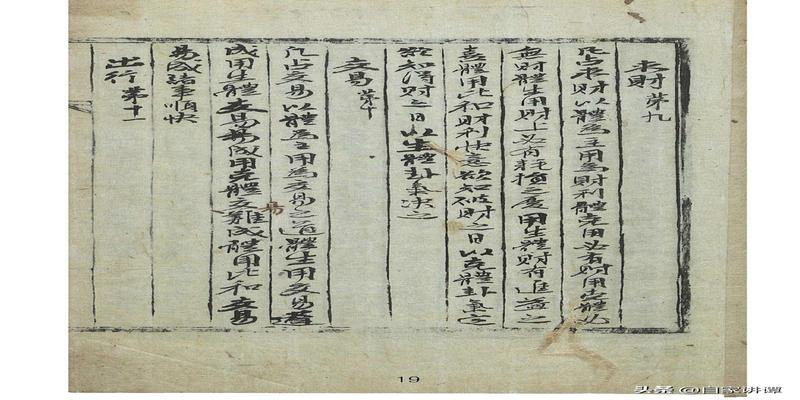 求財 苐九
凡占求財以體為主用為財利體克用必有財用克體必
無財體生用財上必有耗損之虞用生體財有進益之
喜體用比和財利快意欲知破財之日以克體卦氣定
欲知得財之日以生體卦氣決之
交易 苐十
凡占交易以體為主用為交易之道體生用交易
成用生體交易易成用克體交易難成體用比和交易
易成諸事順快
出行 苐十一
19
头条 @自家讲谭